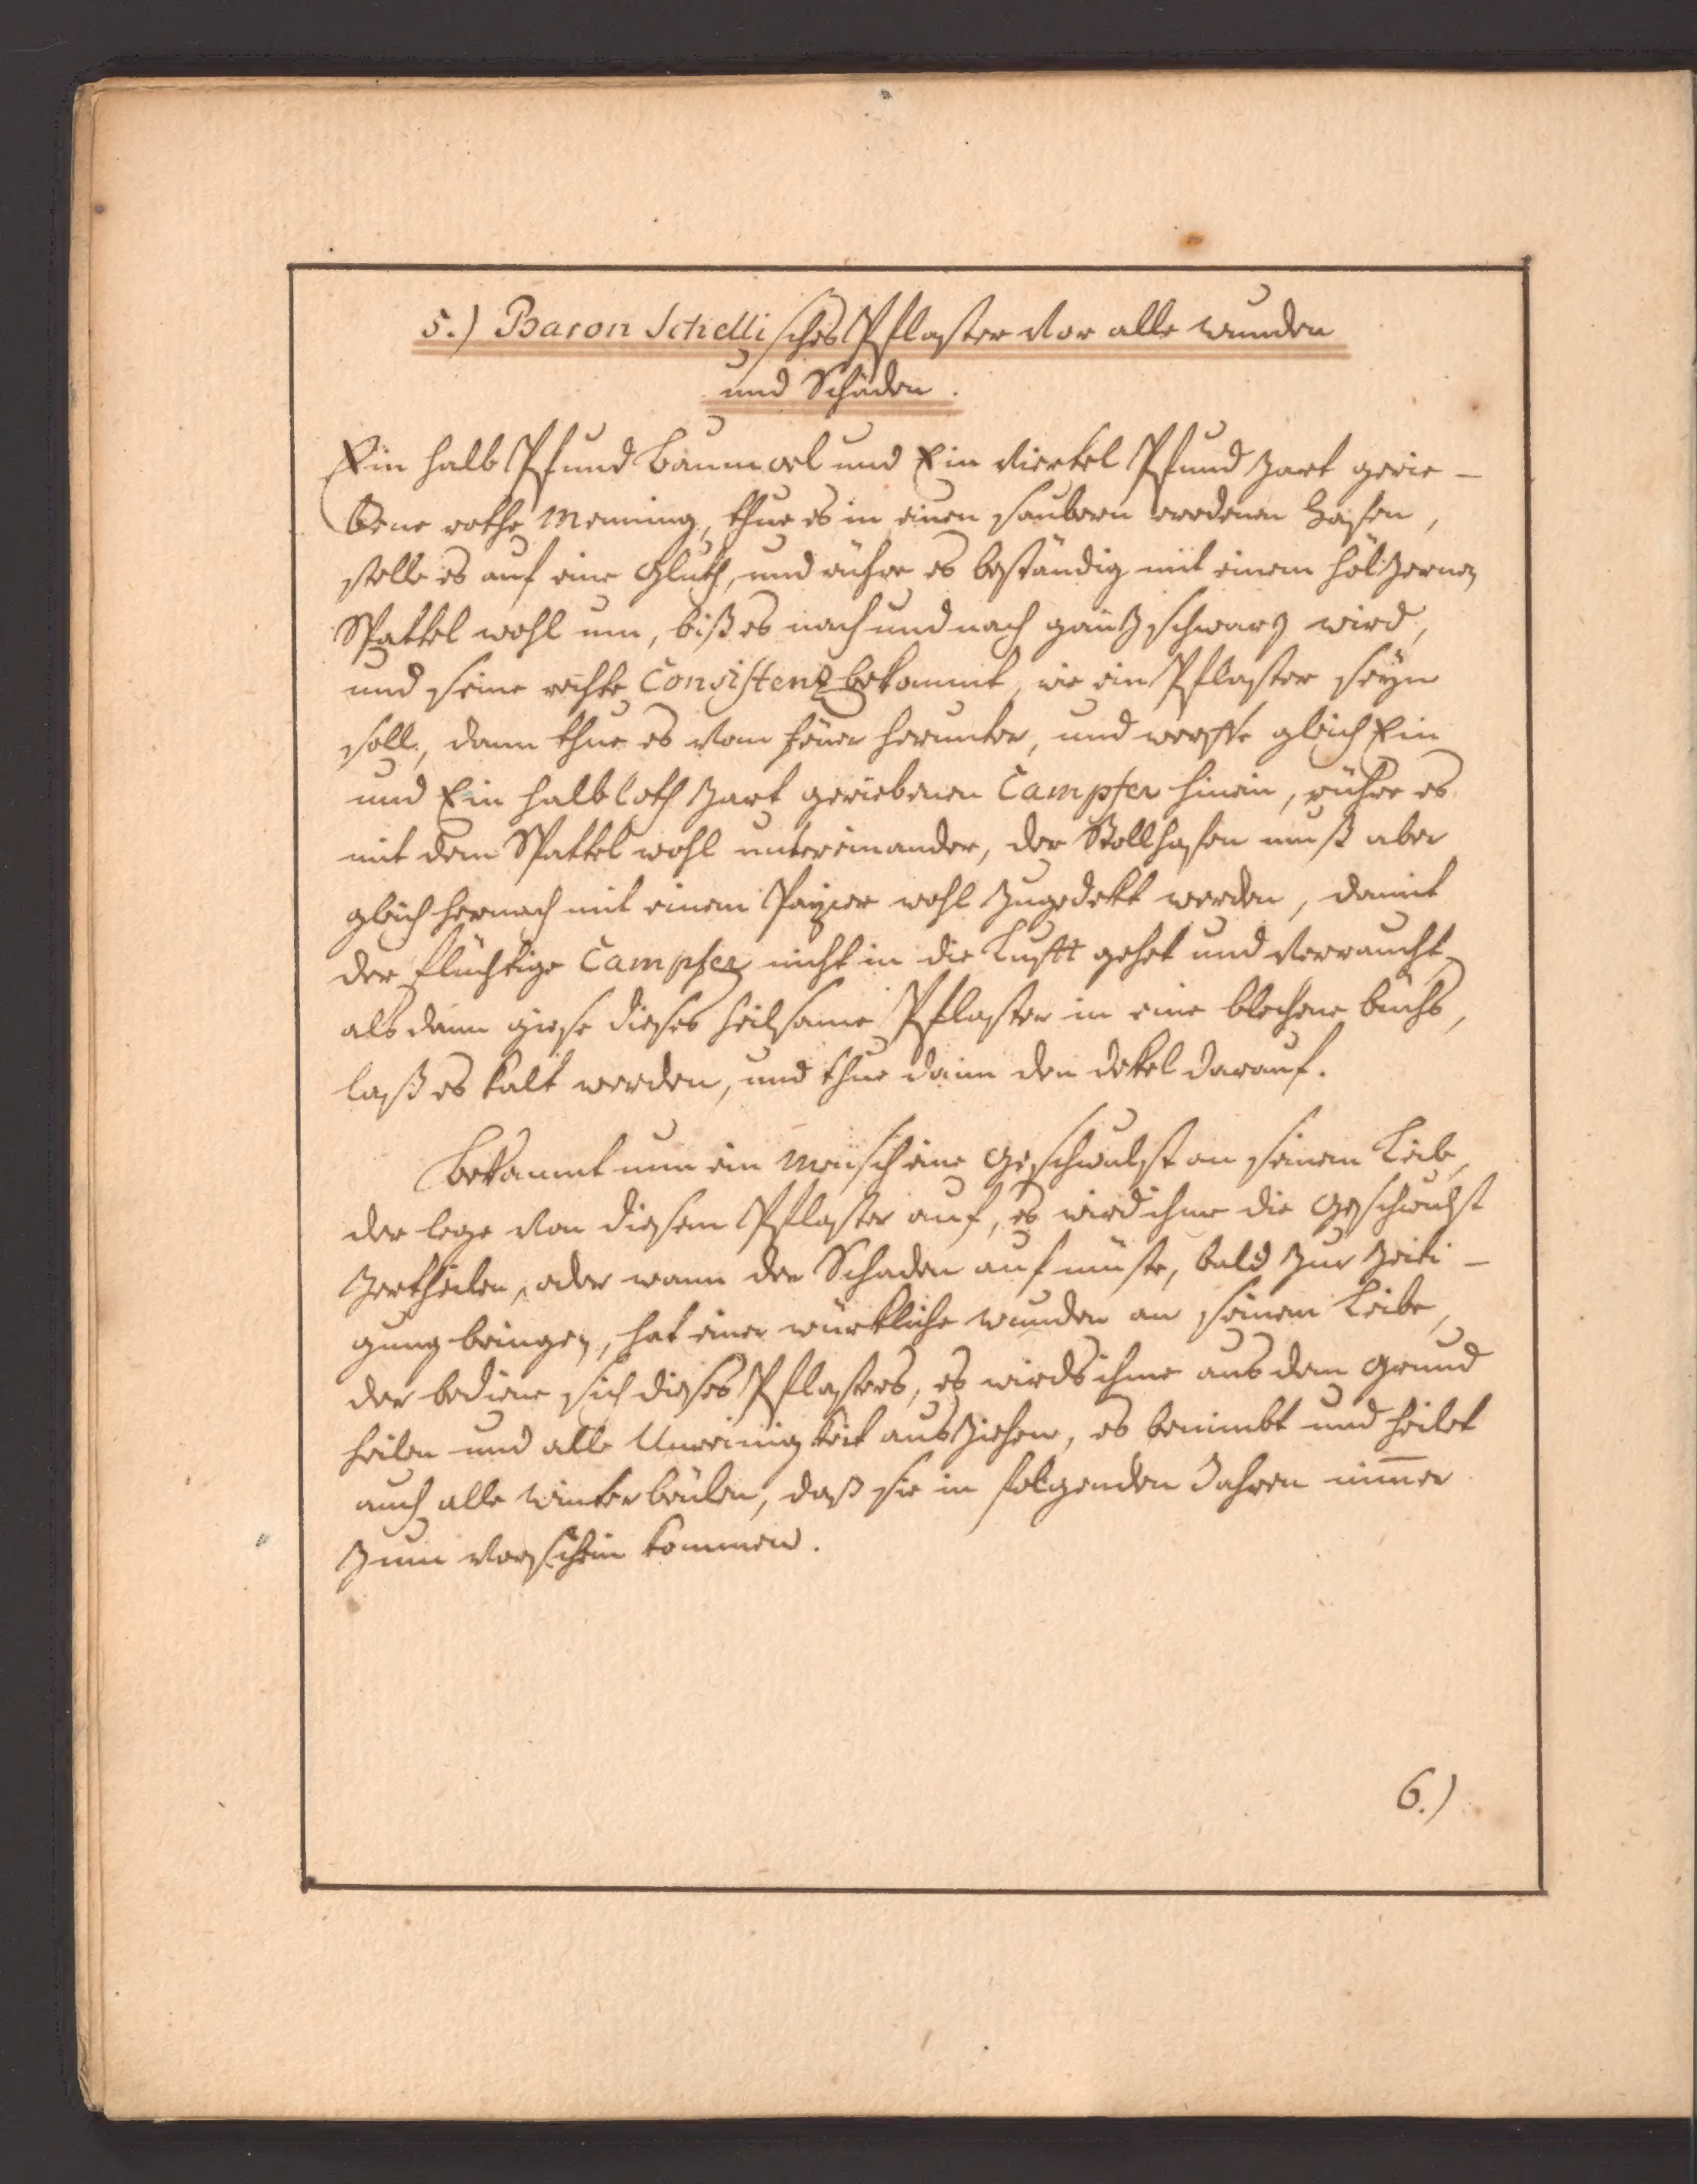 5.) Baron Schellisches Pflaster vor alle wunden
und Schäden.
Ein halb Pfund baumoel und Ein viertel Pfund zart gerie-
bene rothe Mennung, thue es in einen saubern erdenen Hafen,
stelle es auf eine Gluth, und rühre es beständig mit einem höltzernen
Spattel wohl um, biß es nach und nach gantz schwarz wird,
und seine rechte Consistenz bekommt, wie ein Pflaster seyn
soll, dann thue es vom feuer herunter, und werffe gleich Ein
und Ein halb loth zart geriebenen Campfer hinein, rühre es
mit dem Spattel wohl untereinander, der Stollhafen muß aber
gleich hernach mit einem Papier wohl zugedekt werden, damit
der flüchtige Campfer nicht in die Lufft gehet und verraucht,
als dann giese dieses heilsame Pflaster in eine blechene büchs,
laß es kalt werden, und thue dann den dekel darauf.
Bekommt nun ein Mensch eine Geschwulst an seinem Leib,
der lege von diesem Pflaster auf, es wird ihme die Geschwulst
zertheilen, oder wann der Schaden auf müste, bald zur zeiti-
gung bringen, hat einer würkliche wunden an seinem Leibe,
der bediene sich dieses Pflasters, es wirds ihme aus dem Grund
heilen und alle Unreinigkeit ausziehen, es benimbt und heilet
auch alle winterbeulen, daß sie in folgenden Jahren nimer
zum vorschein kommen.
6.)